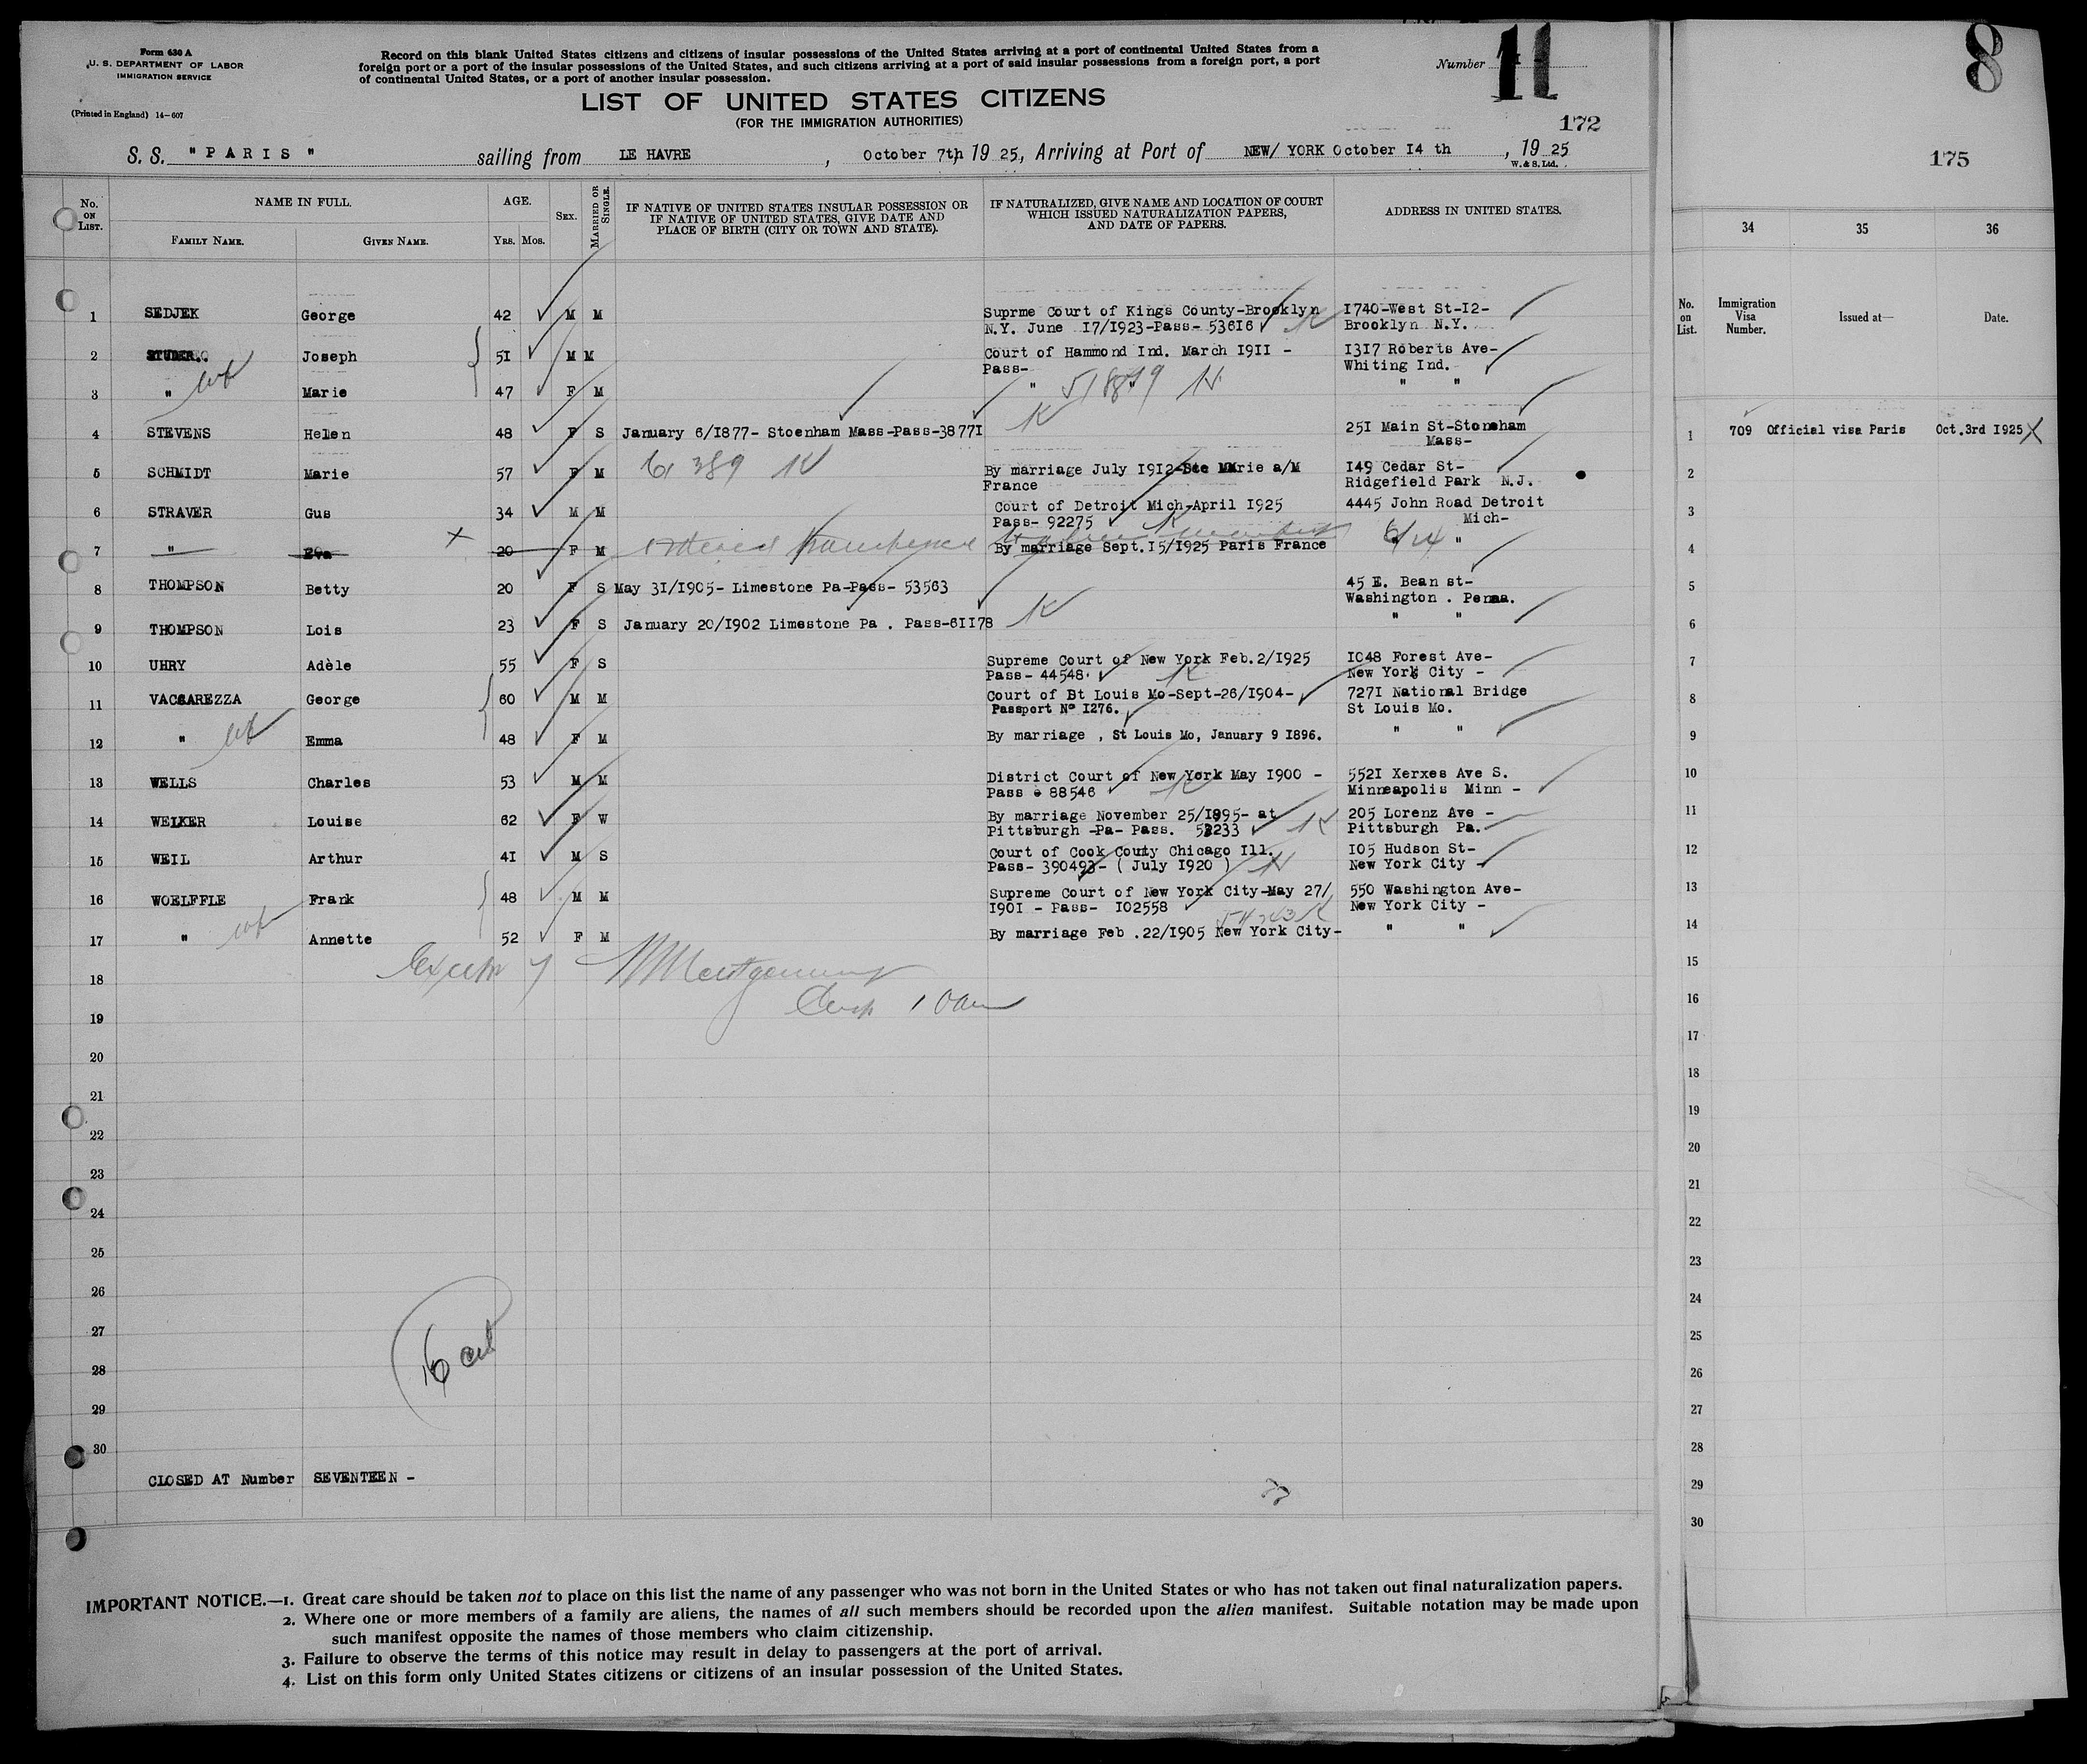 Form 630 A
U. S. DEPARTMENT OF LABOR
IMMIGRATION SERVICE
(Printed in England) 14-607
Record on this blank United States citizens and citizens of insular possessions of the United States arriving at a port of continental United States from a
foreign port or a port of the insular possessions of the United States, and such citizens arriving at a port of said insular possessions from a foreign port, a port
of continental United States, or a port of another insular possession.
Number 11
LIST OF UNITED STATES CITIZENS
(FOR THE IMMIGRATION AUTHORITIES)
172
S. S. "PARIS" sailing from LE HAVRE, October 7th 1925, Arriving at Port of NEW/ YORK October I4 th, 1925
W. & S. Ltd.
No. ON LIST. NAME IN FULL. AGE. SEX. MARRIED OR SINGLE. IF NATIVE OF UNITED STATES INSULAR POSSESSION OR IF NATIVE OF UNITED STATES, GIVE DATE AND PLACE OF BIRTH (CITY OR TOWN AND STATE). IF NATURALIZED, GIVE NAME AND LOCATION OF COURT WHICH ISSUED NATURALIZATION PAPERS, AND DATE OF PAPERS. ADDRESS IN UNITED STATES.
FAMILY NAME. GIVEN NAME. YRS. MOS.
1 SEDJEK George 42 M M Suprme Court of Kings County-Brooklyn I740-West St-I2-
N.Y. June I7/I923-Pass- 53616 K Brooklyn N.Y.
2 Joseph 5I M M Court of Hammond Ind. March I9II - I3I7 Roberts Ave-
Pass- Whiting Ind.
3 " wf Marie 47 F M " " "
4 STEVENS Helen 48 F S January 6/I877- Stoenham Mass-Pass-3877I K 25I Main St-Stoneham
Mass-
5 SCHMIDT Marie 57 F M 61389 K By marriage July I9I2-Ste Marie a/M I49 Cedar St-
France Ridgefield Park N.J.
6 STRAVER Gus 34 M M Court of Detroit Mich-April I925 4445 John Road Detroit
Pass- 92275 K Mich-
7 " Eva X 20 F M By marriage Sept.I5/I925 Paris France "
8 THOMPSON Betty 20 F S May 3I/I905- Limestone Pa-Pass- 53563 45 E. Bean st-
Washington . Penna.
9 THOMPSON Lois 23 F S January 20/I902 Limestone Pa . Pass-6II78 K " "
10 UHRY Adèle 55 F S Supreme Court of New York Feb.2/I925 I048 Forest Ave-
Pass- 44548. K New York City -
11 VACCAREZZA George 60 M M Court of St Louis Mo-Sept-26/I904- 727I National Bridge
Passport Nº I276. St Louis Mo.
12 " wf Emma 48 F M By marriage , St Louis Mo, January 9 I896. " "
13 WELLS Charles 53 M M District Court of New York May I900 - 552I Xerxes Ave S.
Pass - 88546 K Minneapolis Minn -
14 WELKER Louise 62 F W By marriage November 25/I895- at 205 Lorenz Ave -
Pittsburgh -Pa- Pass. 52233 K Pittsburgh Pa.
15 WEIL Arthur 4I M S Court of Cook County Chicago Ill. I05 Hudson St-
Pass- 390493- ( July I920 ) K New York City -
16 WOELFFLE Frank 48 M M Supreme Court of New York City-May 27/ 550 Washington Ave-
I90I - Pass- I02558 New York City -
17 " wf Annette 52 F M By marriage Feb .22/I905 New York City- " "
18
19
20
21
22
23
24
25
26
27
28
29
30
16 cit
CLOSED AT Number SEVENTEEN -
IMPORTANT NOTICE.—1. Great care should be taken not to place on this list the name of any passenger who was not born in the United States or who has not taken out final naturalization papers.
2. Where one or more members of a family are aliens, the names of all such members should be recorded upon the alien manifest. Suitable notation may be made upon
such manifest opposite the names of those members who claim citizenship.
3. Failure to observe the terms of this notice may result in delay to passengers at the port of arrival.
4. List on this form only United States citizens or citizens of an insular possession of the United States.
8
175
34 35 36
No. on List. Immigration Visa Number. Issued at— Date.
1 709 Official visa Paris Oct.3rd I925 X
2
3
4
5
6
7
8
9
10
11
12
13
14
15
16
17
18
19
20
21
22
23
24
25
26
27
28
29
30